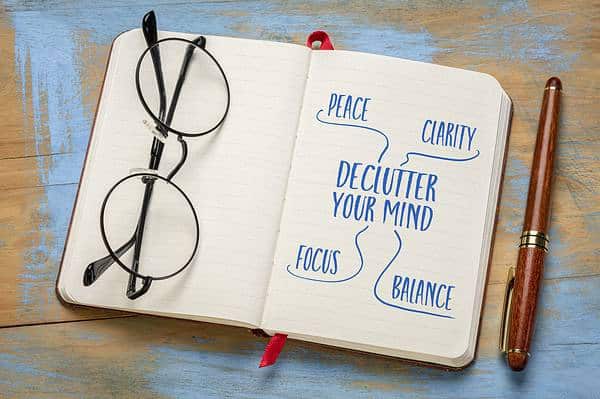 PEACE
CLARITY
DECLUTTER
YOUR MIND
FOCUS
BALANCE